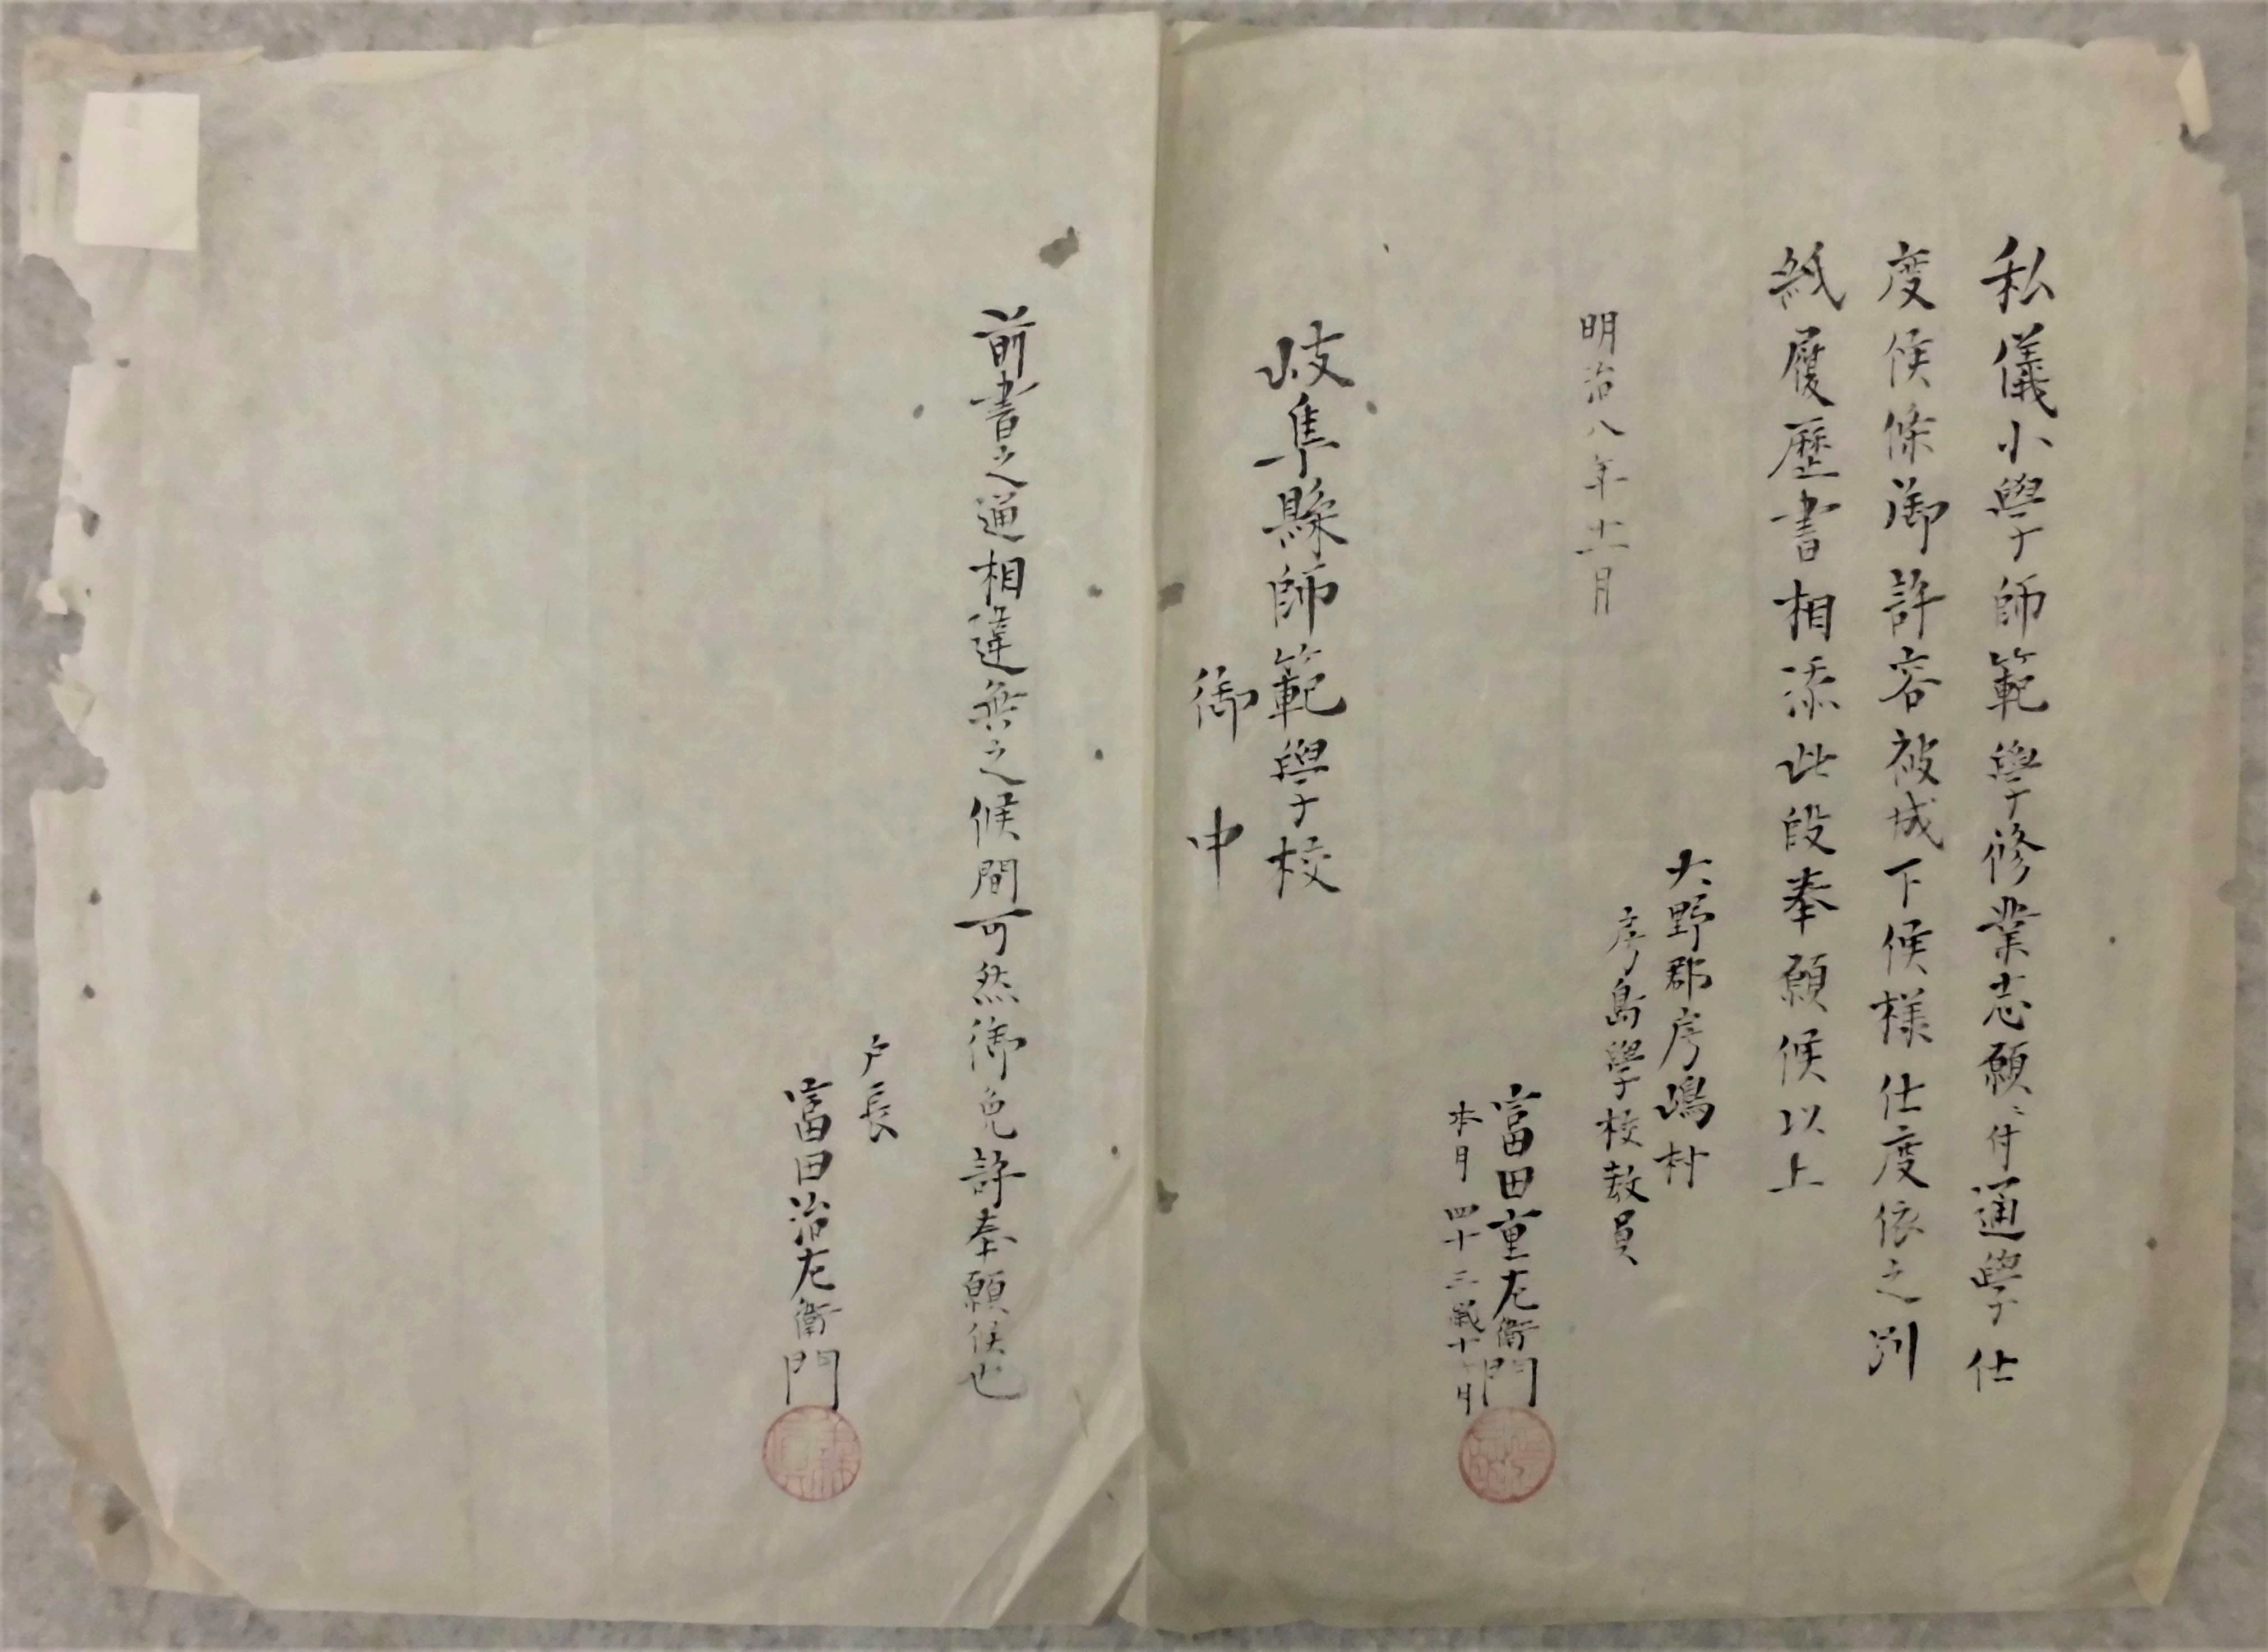 私儀小學師範學修業志願ニ付通學仕
度候條御許容被成下候様仕度依之別
紙履歴書相添此段奉願候以上
大野郡房嶋村
房島學校教員
明治八年十一月
富田重左衛門
本月四十三歳十月
岐阜縣師範學校
御中
前書之通相違無之候間可然御免許奉願候也
戸長
富田治左衛門